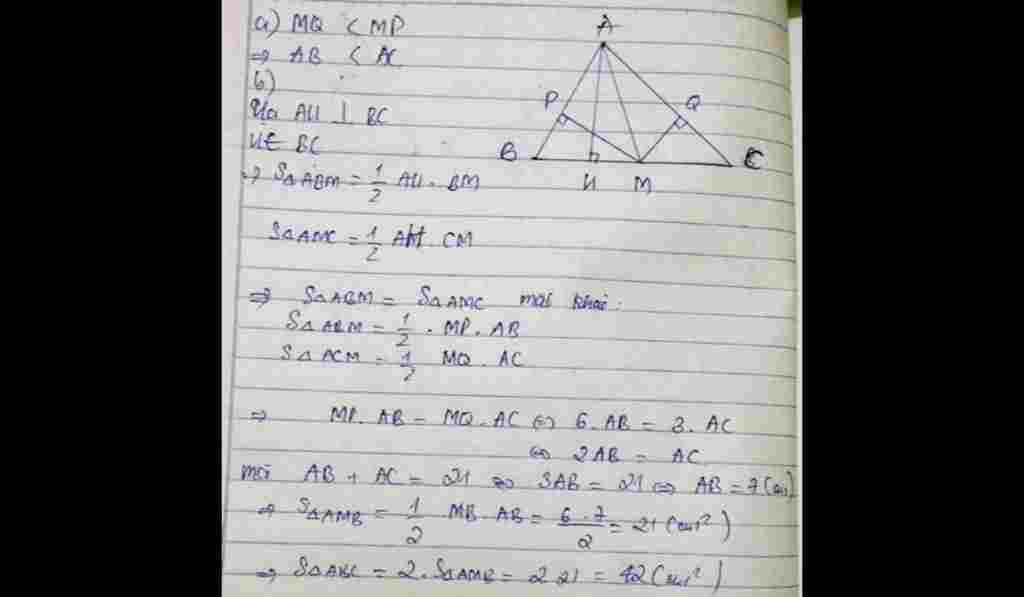 a) MQ < MP
⇒ AB < AC
b)
AH ⊥ BC
H ∈ BC
⇒ S△ABM = 1/2 AH . BM
S△AMC = 1/2 AH . CM
⇒ S△ABM = S△AMC mặt khác:
S△ABM = 1/2 . MP . AB
S△ACM = 1/2 MQ . AC
⇒ MP . AB = MQ . AC ⇔ 6 . AB = 3 . AC
⇔ 2AB = AC
mà AB + AC = 21 ⇔ 3AB = 21 ⇔ AB = 7 (cm)
⇒ S△AMB = 1/2 MB . AB = 6 . 7/2 = 21 (cm²)
⇒ S△ABC = 2 . S△AMB = 2 . 21 = 42 (cm²)
A
P Q
B C
H M